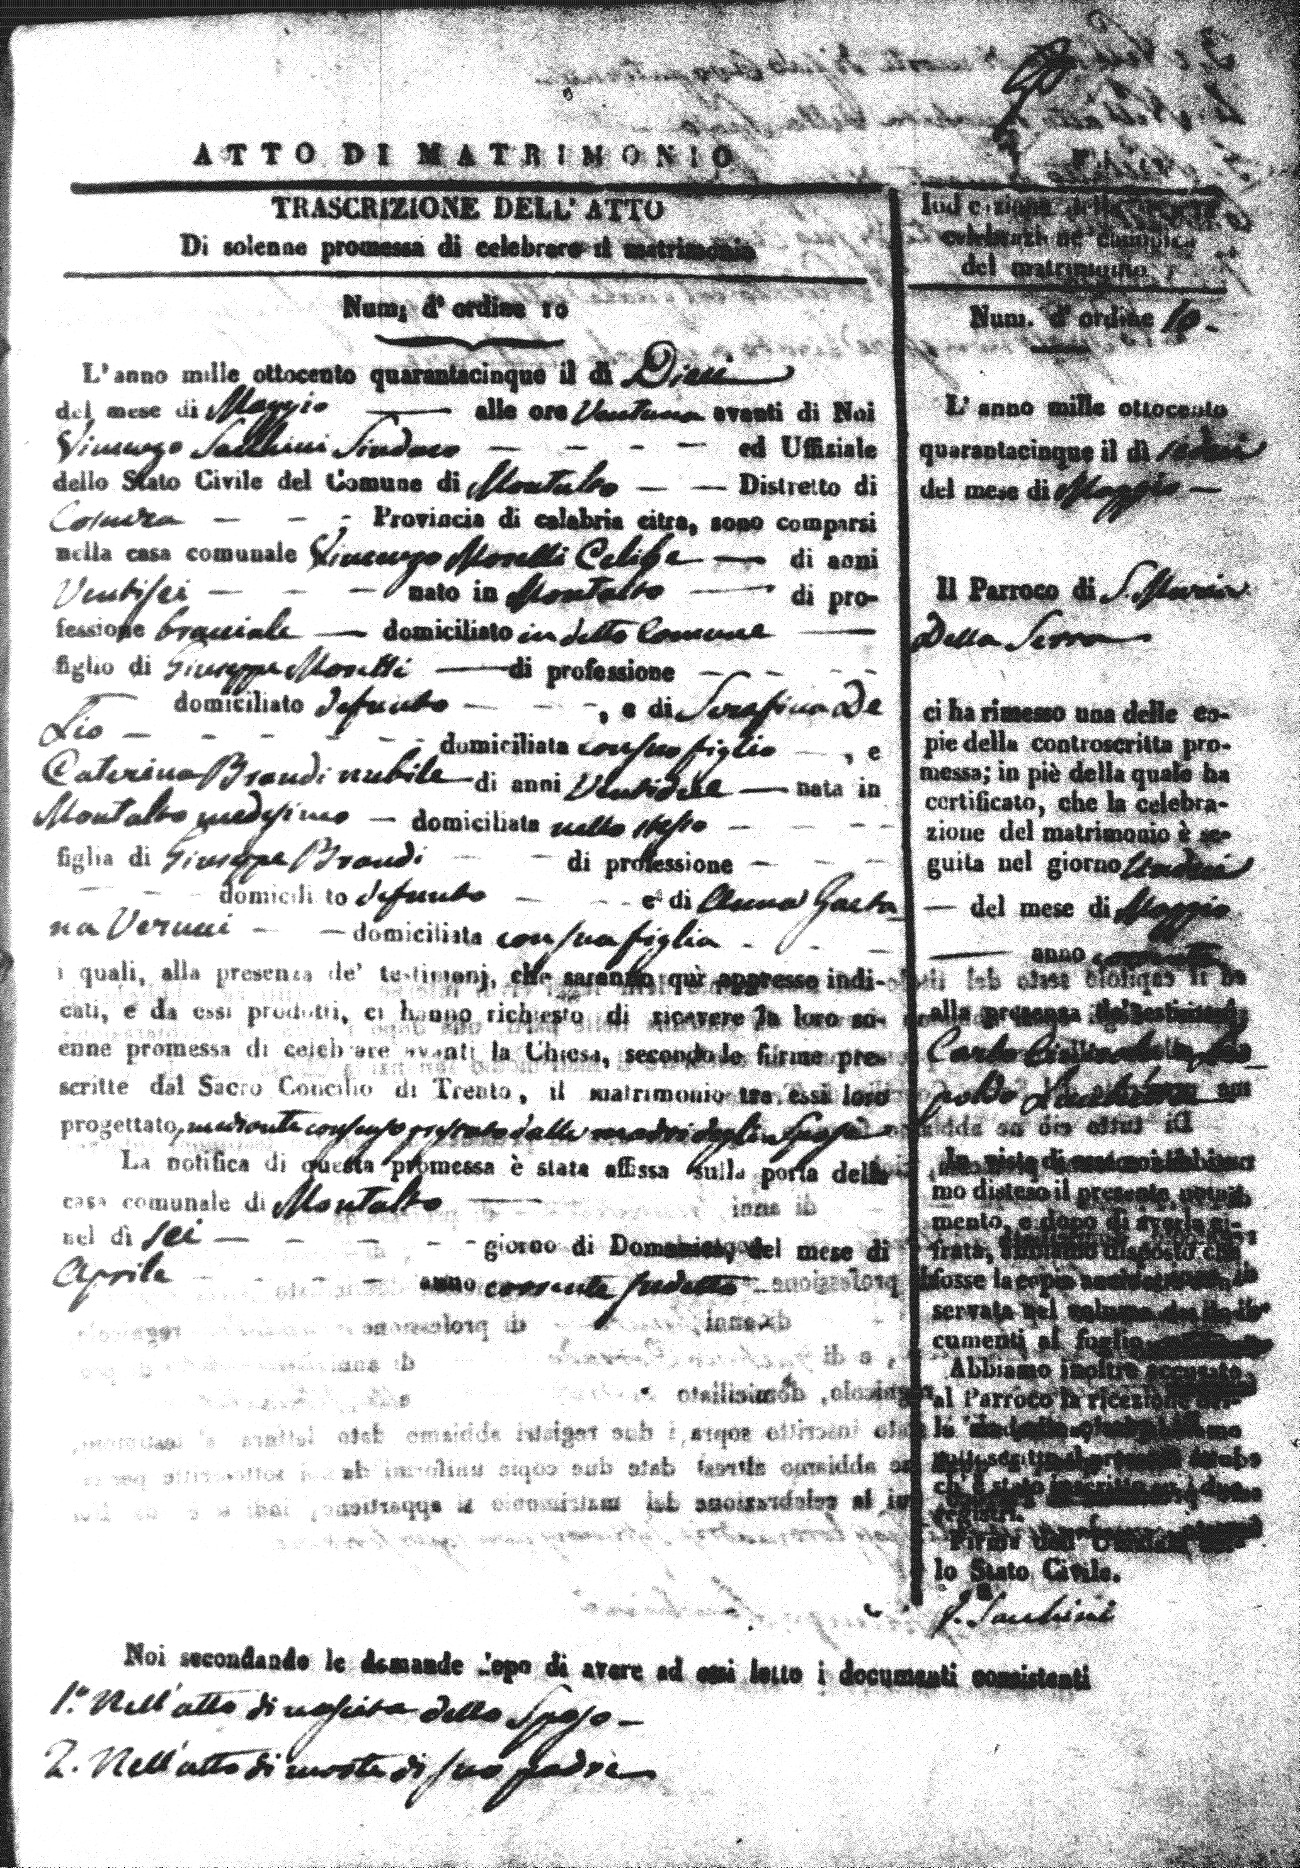 ATTO DI MATRIMONIO
TRASCRIZIONE DELL' ATTO
Di solenne promessa di celebrare il matrimonio
Num; d' ordine 10
L' anno mille ottocento quarantacinque il dì Dieci
del mese di Maggio alle ore Ventuna avanti di Noi
Vincenzo Sacchini Sindaco ed Uffiziale
dello Stato Civile del Comune di Montalto Distretto di
Cosenza Provincia di calabria citra, sono comparsi
nella casa comunale Vincenzo Morelli Celibe di anni
Ventisei nato in Montalto di pro-
fessione bracciale domiciliato in detto Comune
figlio di Giuseppe Morelli di professione
domiciliato defunto , e di Serafina De
Lio domiciliata con suo figlio , e
Caterina Brandi nubile di anni Ventidue nata in
Montalto medesimo domiciliata nello stesso
figlia di Giuseppe Brandi di professione
domicili to defunto e di Anna Gaeta
na Verucci domiciliata con sua figlia
i quali, alla presenza de' testimonj, che saranno quì appresso indi-
cati, e da essi prodotti, ci hanno richiesto di ricevere la loro so-
enne promessa di celebrare avanti la Chiesa, secondo le forme pre-
scritte dal Sacro Concilio di Trento, il matrimonio tra essi loro
progettato, mediante consenso prestato dalle madri degli Sposi
La notifica di questa promessa è stata affissa sulla porta della
casa comunale di Montalto
nel dì sei giorno di Domenica, del mese di
Aprile anno corrente sudetto
Indicazione della
celebrazione canonica
del matrimonio.
Num. d' ordine 10.
L' anno mille ottocento
quarantacinque il dì
del mese di Maggio
Il Parroco di S. Maria
Della Serra
ci ha rimesso una delle co-
pie della controscritta pro-
messa; in piè della quale ha
certificato, che la celebra-
zione del matrimonio è se-
guita nel giorno Undici
del mese di Maggio
anno corrente
alla presenza de' testimonj
Carlo
In vista di essa noi abbia-
mo disteso il presente notam-
mento, e dopo di averla ci-
frata, abbiamo disposto che
fosse la copia anzidetta con-
servata nel volume dei do-
cumenti al foglio
Abbiamo inoltre accusato
al Parroco la ricezione del-
la
sottoscritto il presente
ch' è stato inscritto su i due
registri.
Firma dell' Uffiziale del-
lo Stato Civile.
V. Sacchini
Noi secondando le domande dopo di avere ad essi letto i documenti consistenti
1.° Nell' atto di nascita dello Sposo
2. Nell' atto di morte di suo padre